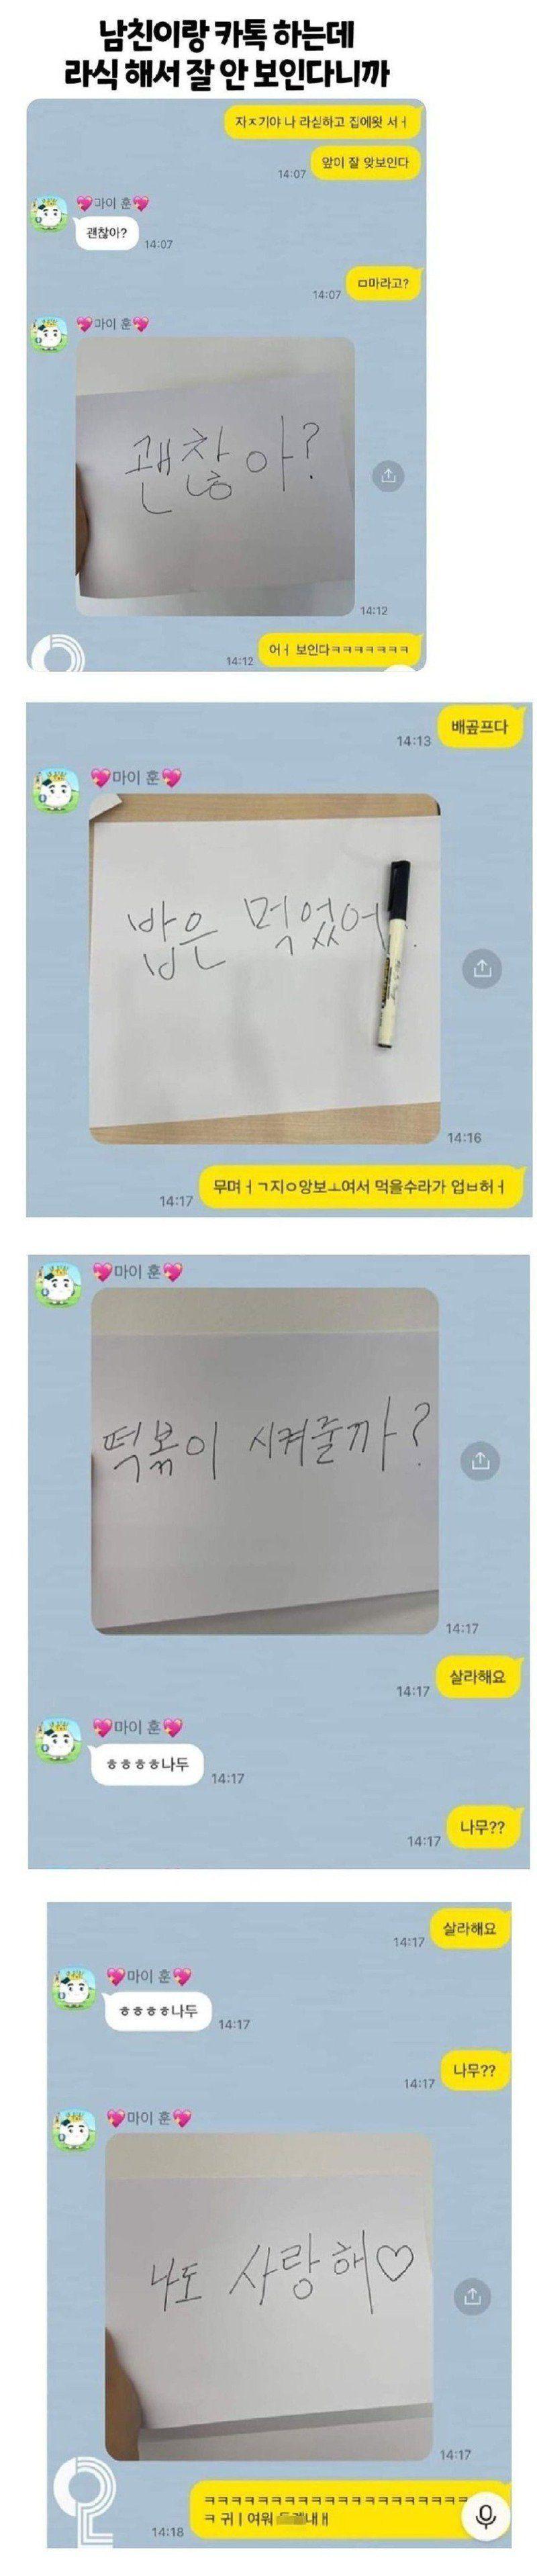 남친이랑 카톡 하는데
라식 해서 잘 안 보인다니까
자ㅈ기야 나 라싣하고 집에왓 서ㅓ
앞이 잘 앚보인다
14:07
💖마이 훈💖
괜찮아?
14:07
ㅁ마라고?
14:07
💖마이 훈💖
괜찮아?
14:12
어ㅓ 보인다ㅋㅋㅋㅋㅋㅋㅋ
14:12
배곺프다
14:13
💖마이 훈💖
밥은 먹었어
14:16
무며ㅓㄱ지ㅇ앙보ㅗ여서 먹을수라가 업ㅂ허ㅓ
14:17
💖마이 훈💖
떡볶이 시켜줄까?
14:17
살라해요
14:17
💖마이 훈💖
ㅎㅎㅎㅎ나두
14:17
나무??
14:17
살라해요
14:17
💖마이 훈💖
ㅎㅎㅎㅎ나두
14:17
나무??
14:17
💖마이 훈💖
나도 사랑해♡
14:17
ㅋㅋㅋㅋㅋㅋㅋㅋㅋㅋㅋㅋㅋㅋㅋㅋㅋㅋㅋㅋ
ㅋ 귀ㅣ여워
14:18